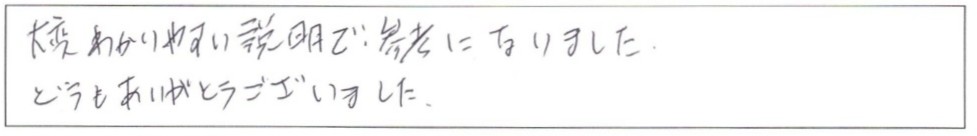 大変わかりやすい説明で、参考になりました。
どうもありがとうございました。